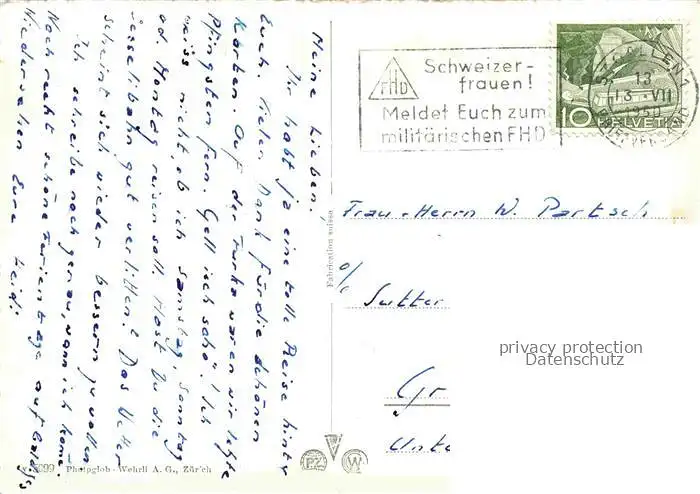 Meine Lieben!
Ihr habt ja eine tolle Reise hinter
Euch. Vielen Dank für die schönen
Karten. Auf der Furka waren wir letzte
Pfingsten fern. Gell isch scho"! Ich
weiss nicht, ob ich Samstag, Sonntag
od. Montag reisen soll. Hast Du die
Sesselibahn gut verlitten? Das Wetter
scheint sich wieder bessern zu wollen
Ich schreibe noch genau, wann ich komme.
Noch recht schöne Ferientage auf baldigs
Wiedersehen Eure Heidi
Schweizer-
frauen!
FHD
Meldet Euch zum
militärischen FHD
ST. GALLEN 1
13
13. VII
1950
BRIEFVERSAND
10 HELVETIA
Frau - Herrn W. Partsch
c/o
Sutter
Gr
Unte
privacy protection
Datenschutz
Fabrication suisse
5099 Photoglob-Wehrli A. G., Zürich
PZ W